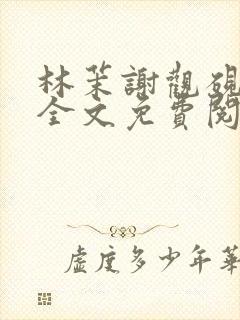 林茉謝觀硯
全文免費閱
虛度多少年華